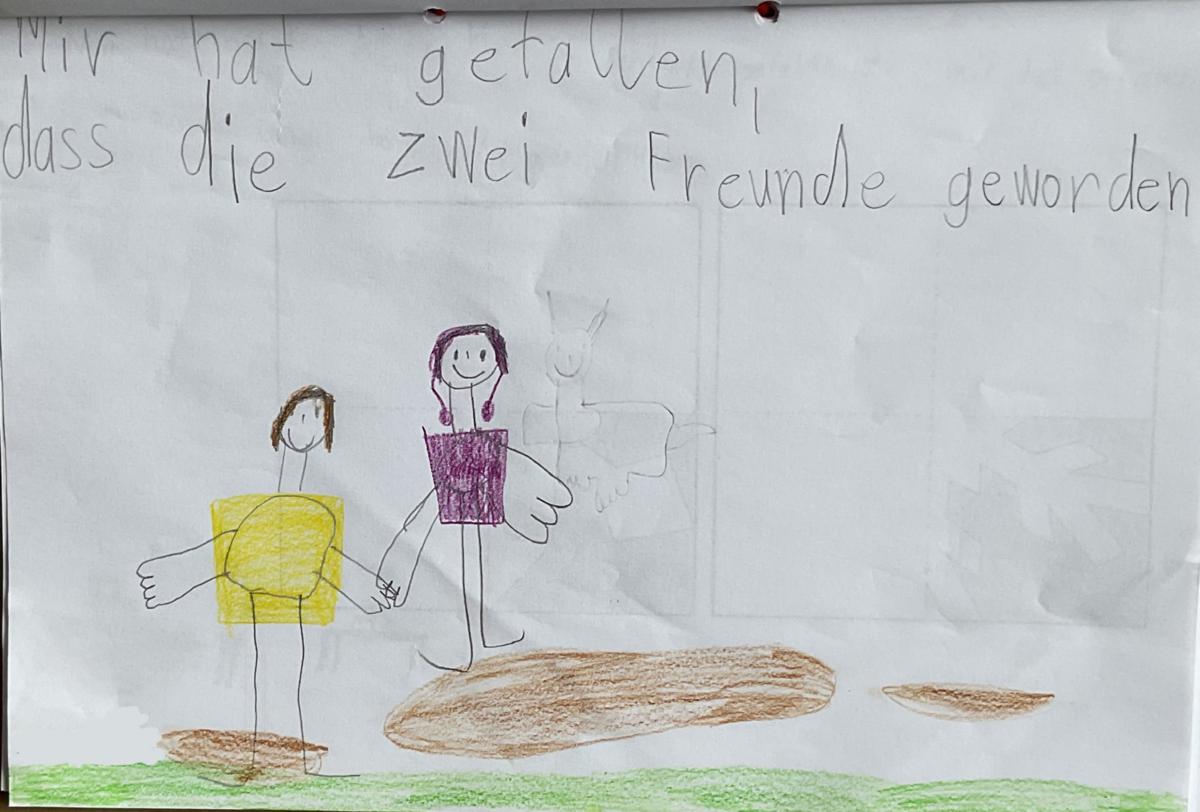 Mir hat gefallen,
dass die zwei Freunde geworden